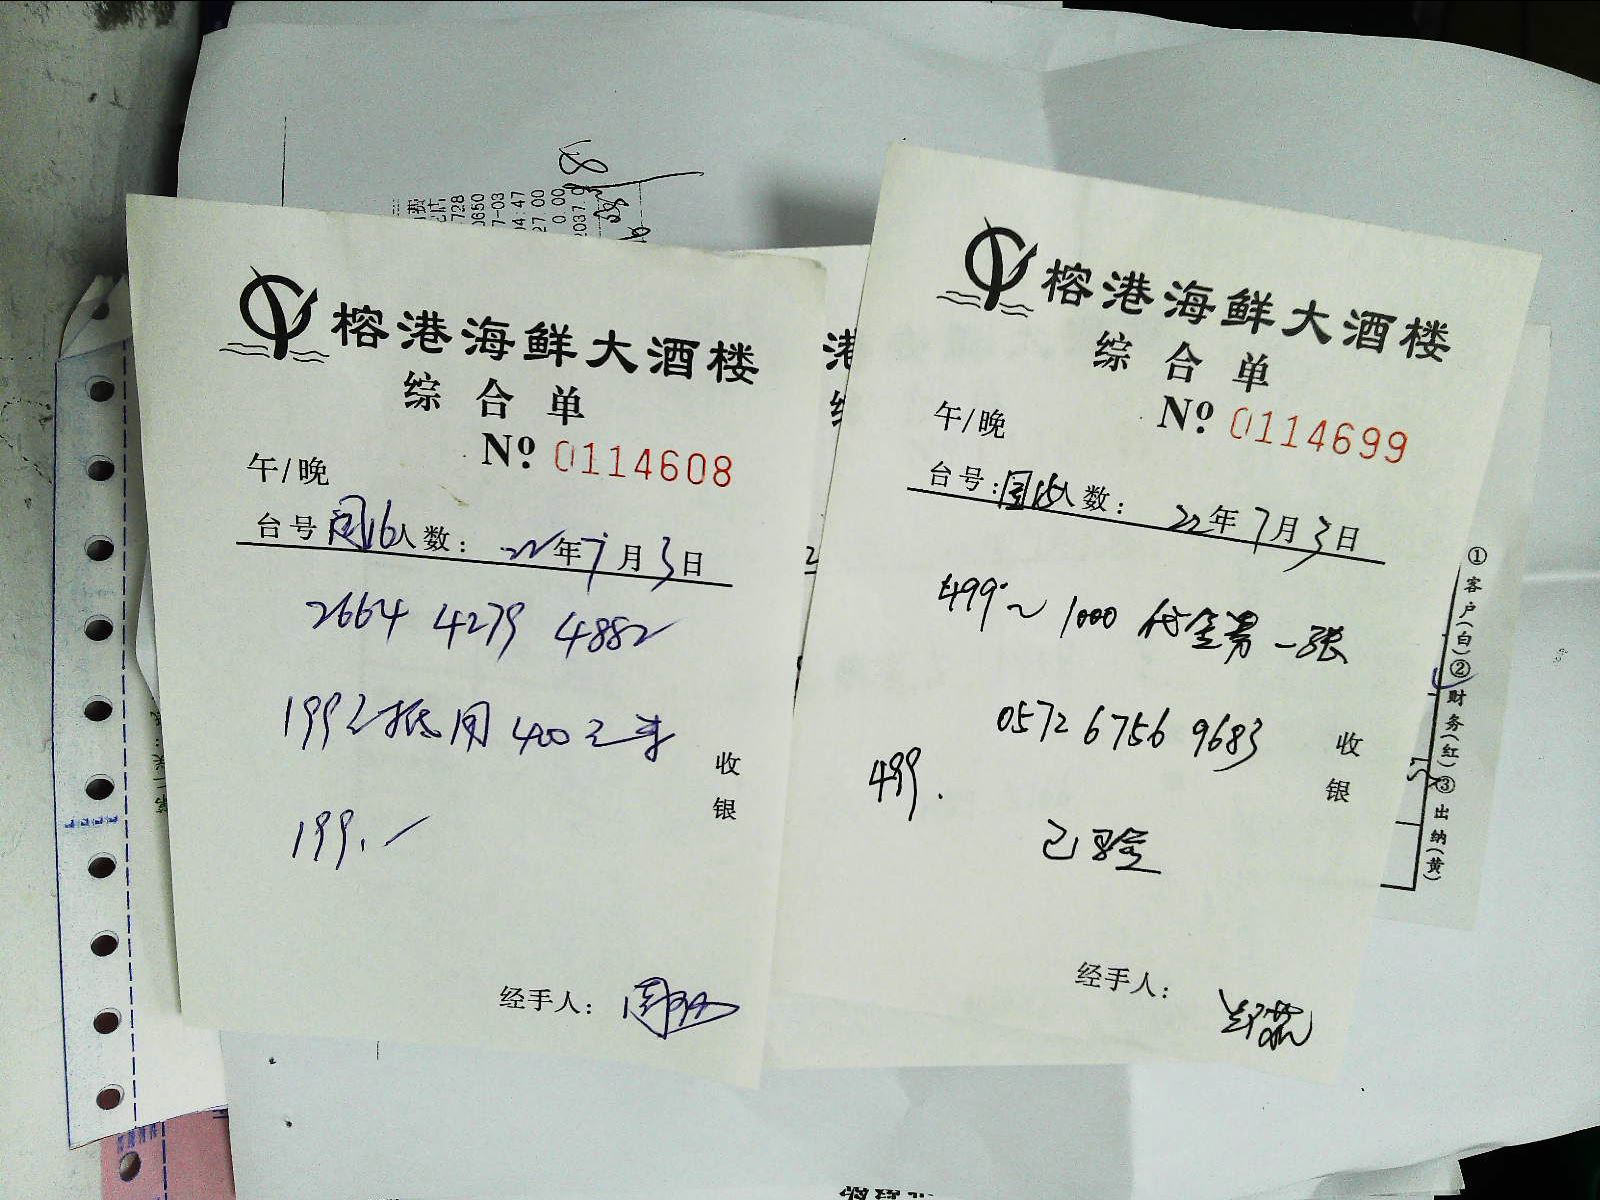 榕港海鲜大酒楼
综合单
No. 0114608
午/晚
台号 周16 人数： 22年7月3日
2664 4279 4882
199元抵用400元
199.
收银
经手人：
榕港海鲜大酒楼
综合单
No. 0114699
午/晚
台号： 15 人数： 22年7月3日
499~1000 代金券一张
0572 6756 9683
499.
已验
收银
经手人：
港
综
①客户(白)②财务(红)③出纳(黄)
728
0650
7-03
04:47
27.00
0.00
2037.9